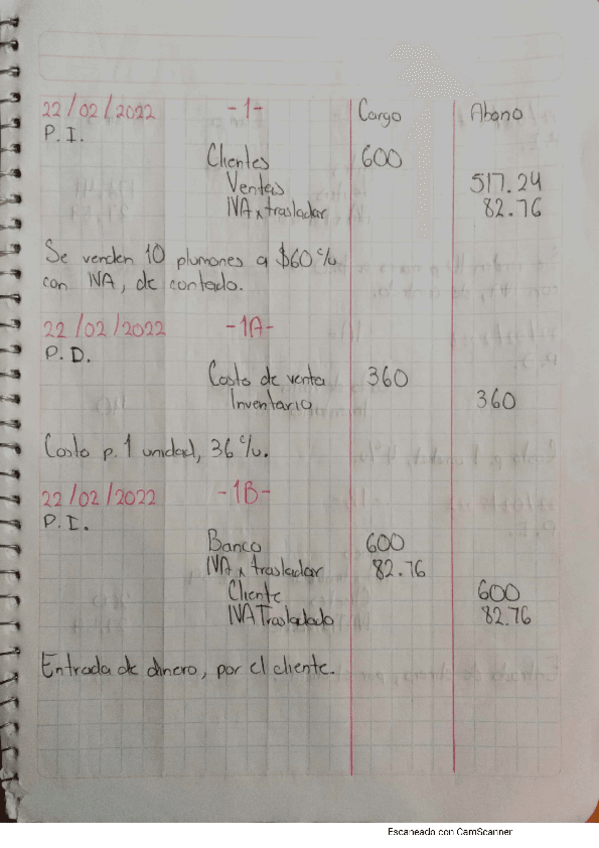 22/02/2022 -1- Cargo Abono
P.I.
Clientes 600
Ventas 517.24
IVA x trasladar 82.76
Se venden 10 plumones a $60 %
con IVA, de contado.
22/02/2022 -1A-
P.D.
Costo de venta 360
Inventario 360
Costo p. 1 unidad, 36 %.
22/02/2022 -1B-
P.I.
Banco 600
IVA x trasladar 82.76
Cliente 600
IVA Trasladado 82.76
Entrada de dinero, por el cliente.
Escaneado con CamScanner